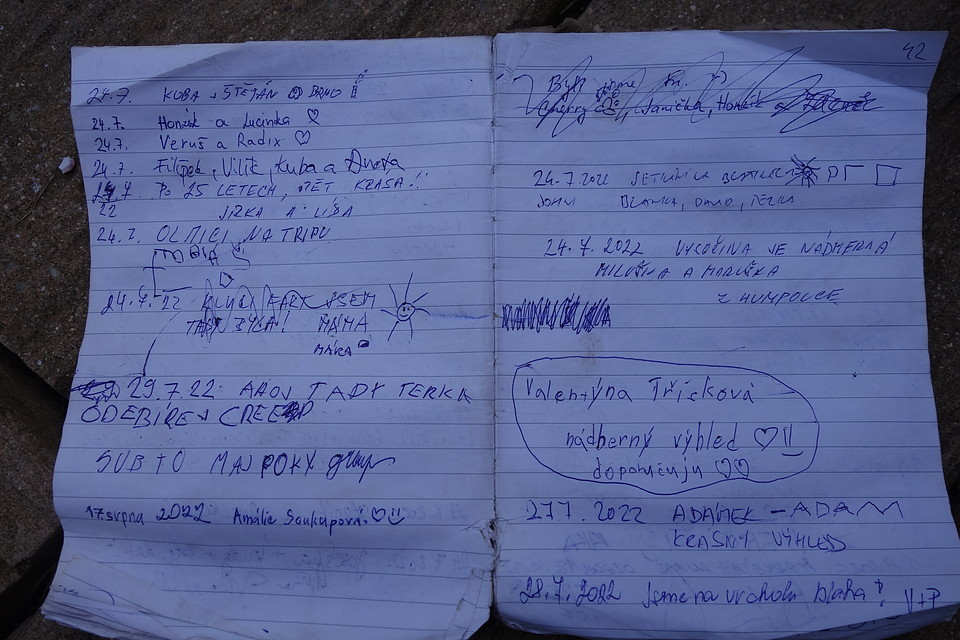 24.7. KUBA + ŠTĚPÁN BRNO
24.7. Honzík a Lucinka ♡
24.7. Veruš a Radix ♡
24.7. Filípek, Vilík, Kuba a
24.7. Po 25 LETECH, KRÁSA!!
22 JIRKA A LÍBA
24.7. OLMÍCI NA TRIPU
24.7.22 JSEM
TADY BYLA! MÁMA
MÁRA
29.7.22 AHOJ TADY TERKA
ODEBÍREJ
SUB TO MAJPOKY
17 srpna 2022 Amálie Soukupová ♡
42
Byli jsme
Cherry Janička, Honzík a
24.7.2022
JOHN BLANKA, DAVID,
24.7.2022 VYSOČINA JE NÁDHERNÁ
MILUŠKA A
Z HUMPOLCE
Valentýna Tříšková
nádherný výhled ♡!!
doporučuju ♡♡
27.7.2022 ADÁMEK - ADAM
KRÁSNÝ VÝHLED
28.7.2022 Jsme na vrcholu blaha! V+P